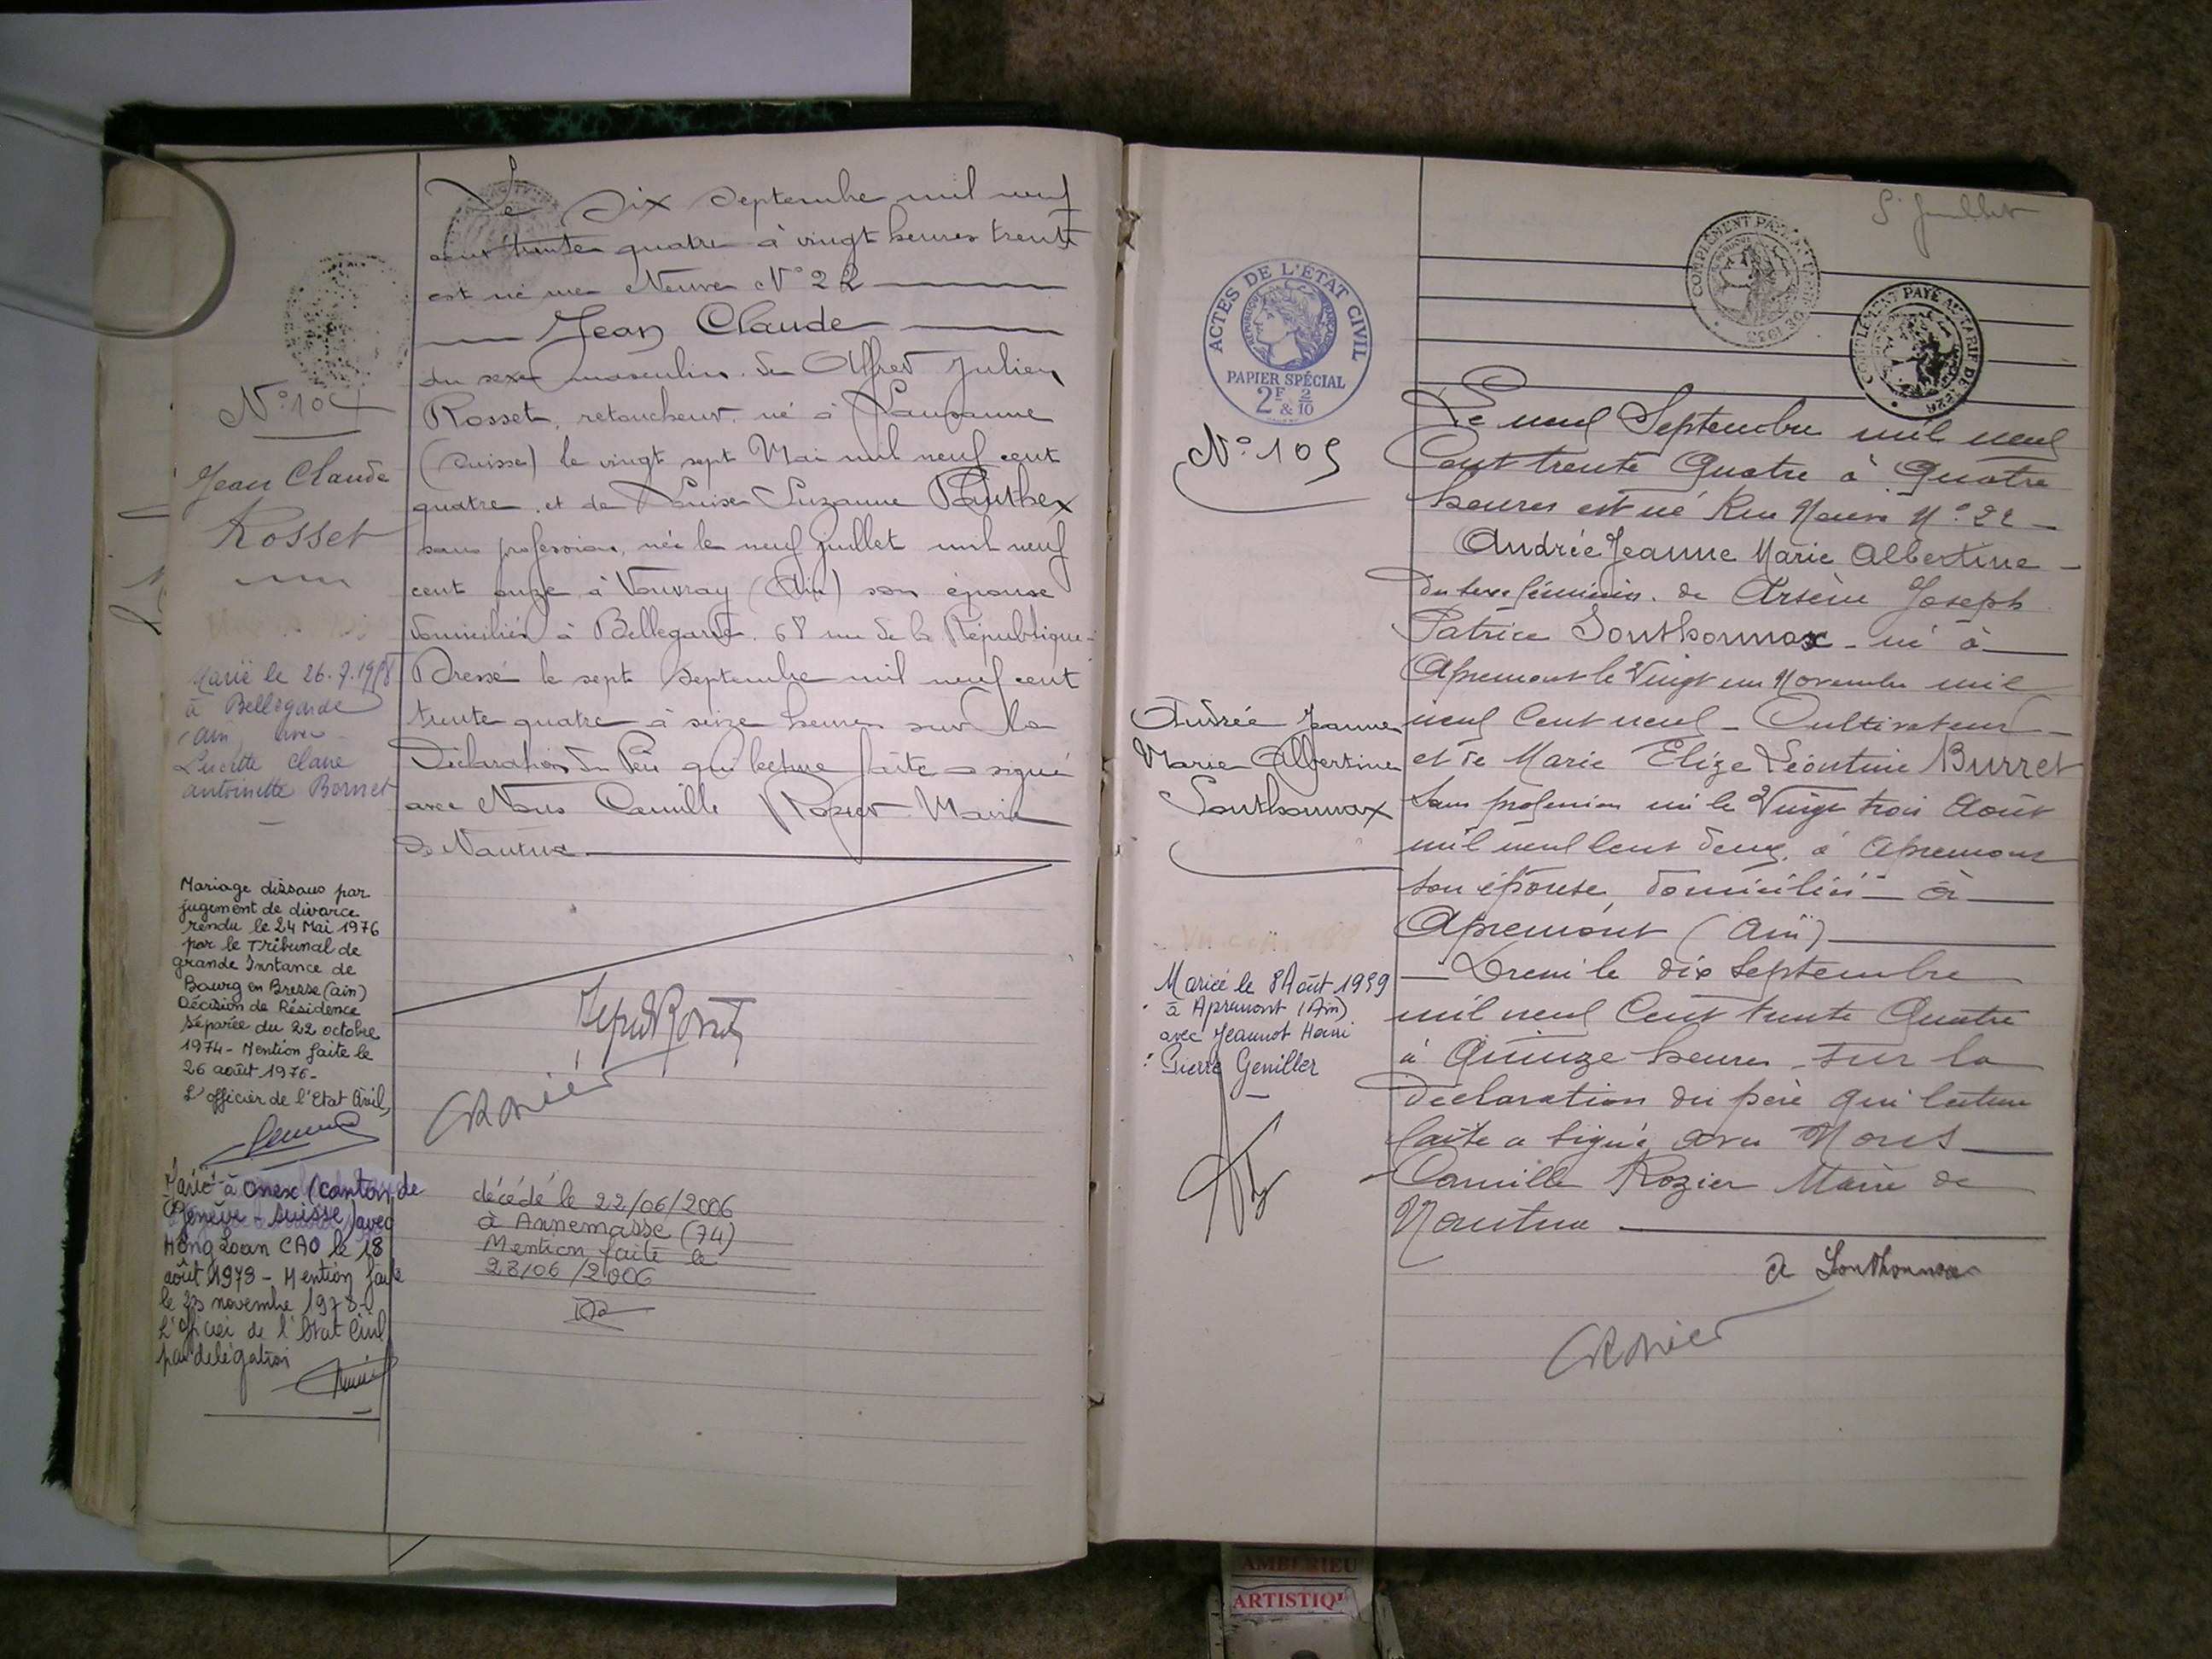 N° 104
Jean Claude
Rosset
Marié le 26.7.1958
à Bellegarde
(Ain) avec
Lucette Claire
Antoinette Bornet
Mariage dissous par
jugement de divorce
rendu le 24 Mai 1976
par le Tribunal de
grande Instance de
Bourg en Bresse (ain)
Décision de Résidence
séparée du 22 octobre
1974 - Mention faite le
26 août 1976 -
L'officier de l'Etat Civil,
Marié à Onex (canton de
Genève - Suisse) avec
Hong Loan CAO le 18
août 1978 - Mention faite
le 23 novembre 1978 -
L'Officier de l'Etat Civil
par délégation
Le Six Septembre mil neuf
cent trente quatre à vingt heures trente
est né rue Neuve N° 22
Jean Claude
du sexe masculin. de Alfred Julien
Rosset, retoucheur, né à Lausanne
(Suisse) le vingt sept Mai mil neuf cent
quatre, et de Louise Suzanne
sans profession, née le neuf juillet mil neuf
cent onze à Vouvray (Ain) son épouse
domiciliés à Bellegarde. 68 rue de la République
Dressé le sept Septembre mil neuf cent
trente quatre à seize heures sur la
Déclaration du Père qui lecture faite a signé
avec Nous Camille Rozier Maire
de Nantua
décédé le 22/06/2006
à Annemasse (74)
Mention faite le
28/06/2006
5 Juillet
COMPLÉMENT PAYÉ AU TARIF DE
COMPLÉMENT PAYÉ AU TARIF DE
ACTES DE L'ÉTAT CIVIL
RÉPUBLIQUE FRANÇAISE
PAPIER SPÉCIAL
2F & 2/10
N° 105
Andrée Jeanne
Marie Albertine
Sonthonnax
Mariée le 8 Août 1959
à Apremont (Ain)
avec Jeannot Henri
Pierre Geniller
Le neuf Septembre mil neuf
Cent trente Quatre à Quatre
heures est né Rue Neuve N° 22 -
Andrée Jeanne Marie Albertine -
du sexe féminin. de Arsène Joseph
Patrice Sonthonnax - né à
Apremont le Vingt un Novembre mil
neuf Cent neuf - Cultivateur -
et de Marie Elize Léontine Burret
Sans profession né le Vingt trois Août
mil neuf Cent deux, à Apremont
son épouse, domiciliés à
Apremont (Ain)
- Dressé le dix Septembre
mil neuf Cent trente Quatre
à Quinze heures - sur la
déclaration du père qui lecture
faite a signé avec Nous
Camille Rozier Maire de
Nantua
A Sonthonnax
AMBERIEU
ARTISTIQ